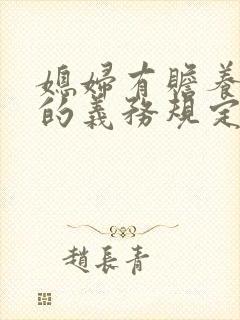 媳婦有贍養
的義務規定
趙長青